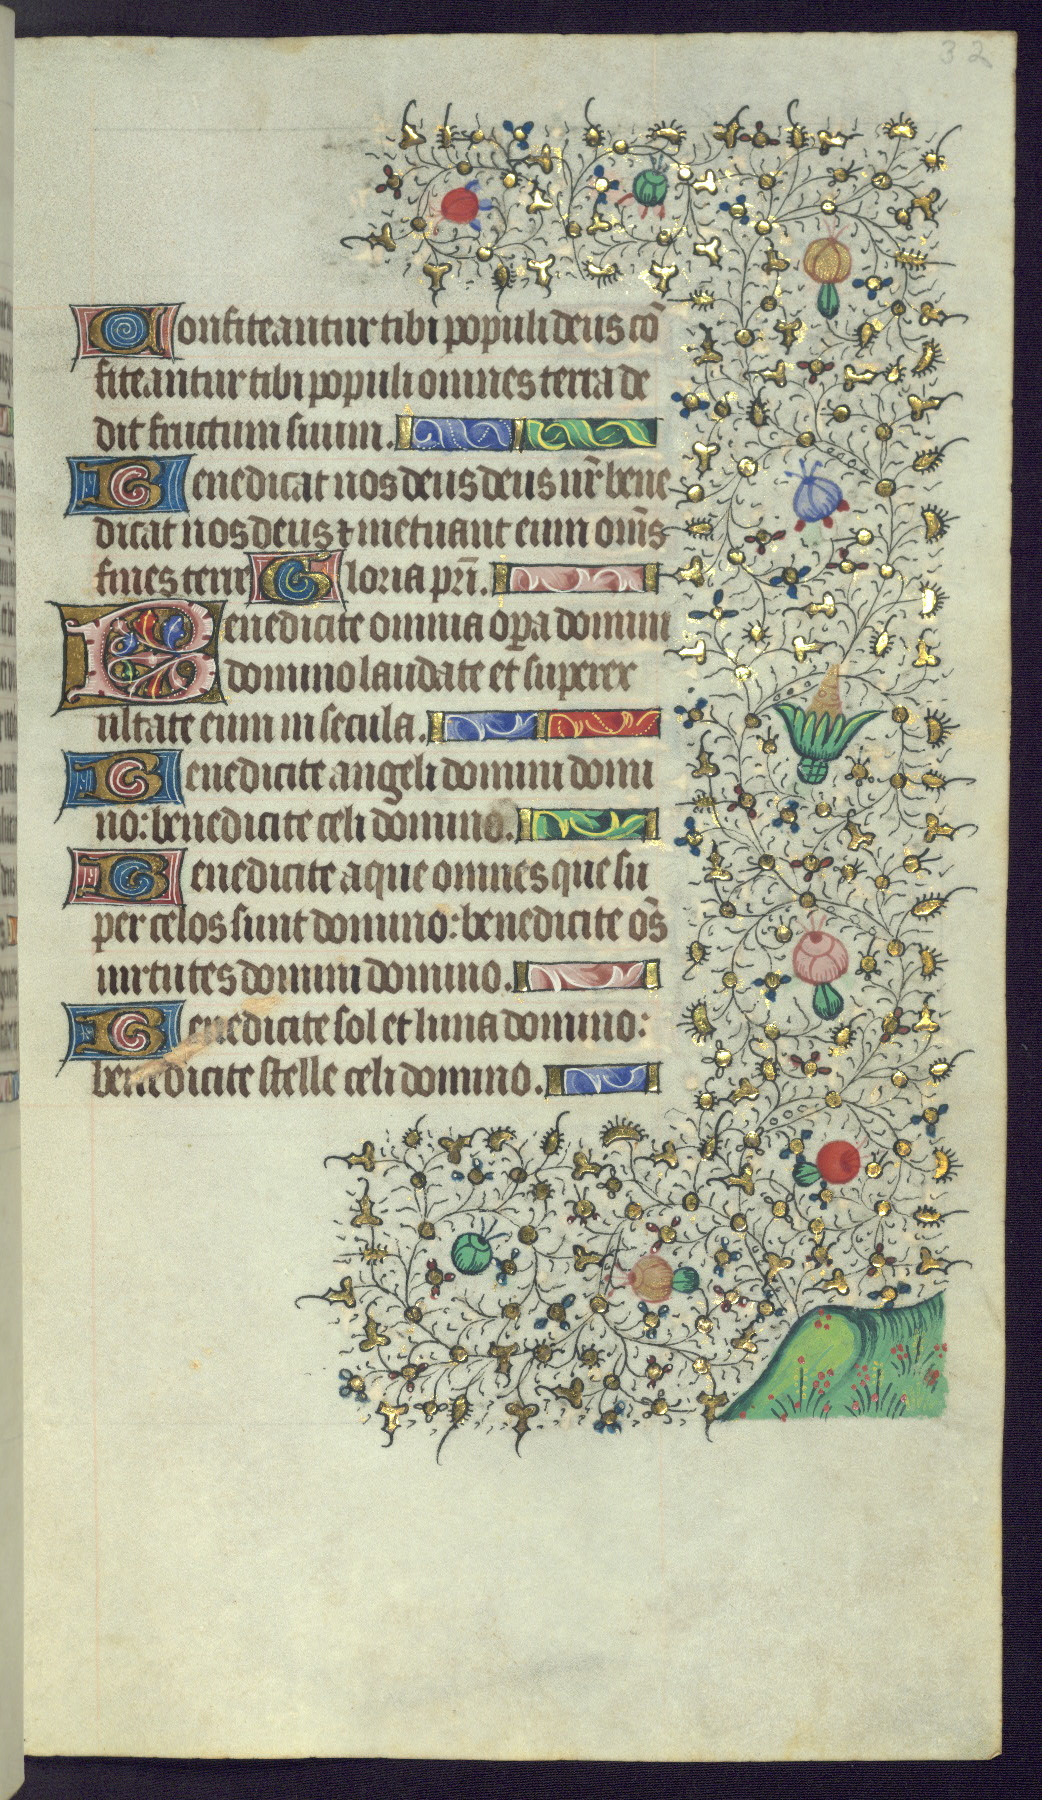 32
Confiteantur tibi populi deus cō
fiteantur tibi populi omnes terra de
dit fructum suum.
Benedicat nos deus deus nr̄ bene
dicat nos deus ⁊ metuant eum om̄s
fines terre Gloria pr̄i.
Benedicite omnia oꝑa domini
domino laudate et superex
ultate eum in secula.
Benedicite angeli domini domi
no: benedicite celi domino.
Benedicite aque omnes que su
per celos sunt domino: benedicite om̄s
uirtutes domini domino.
Benedicite sol et luna domino:
benedicite stelle celi domino.